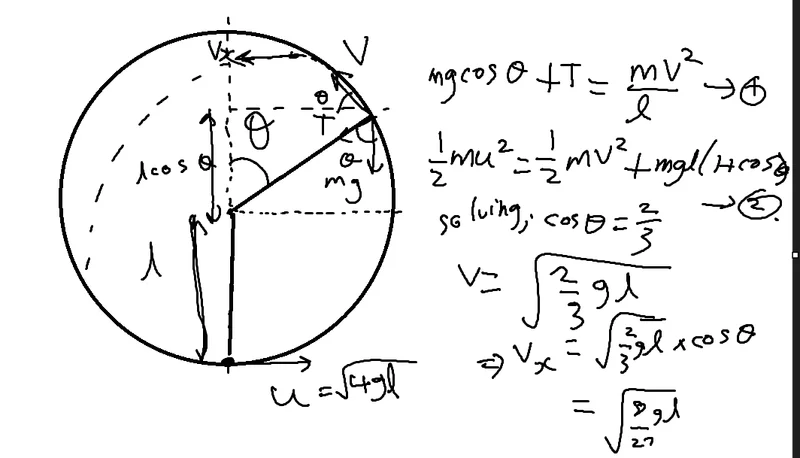 Vx
V
θ
θ
T
θ
lcosθ
mg
l
u = √4gl
mgcosθ + T = mV²/l → ①
1/2 mu² = 1/2 mV² + mgl(1+cosθ) → ②
solving, cosθ = 2/3
V = √(2/3 gl)
⇒ Vx = √(2/3 gl) × cosθ
= √(8/27 gl)